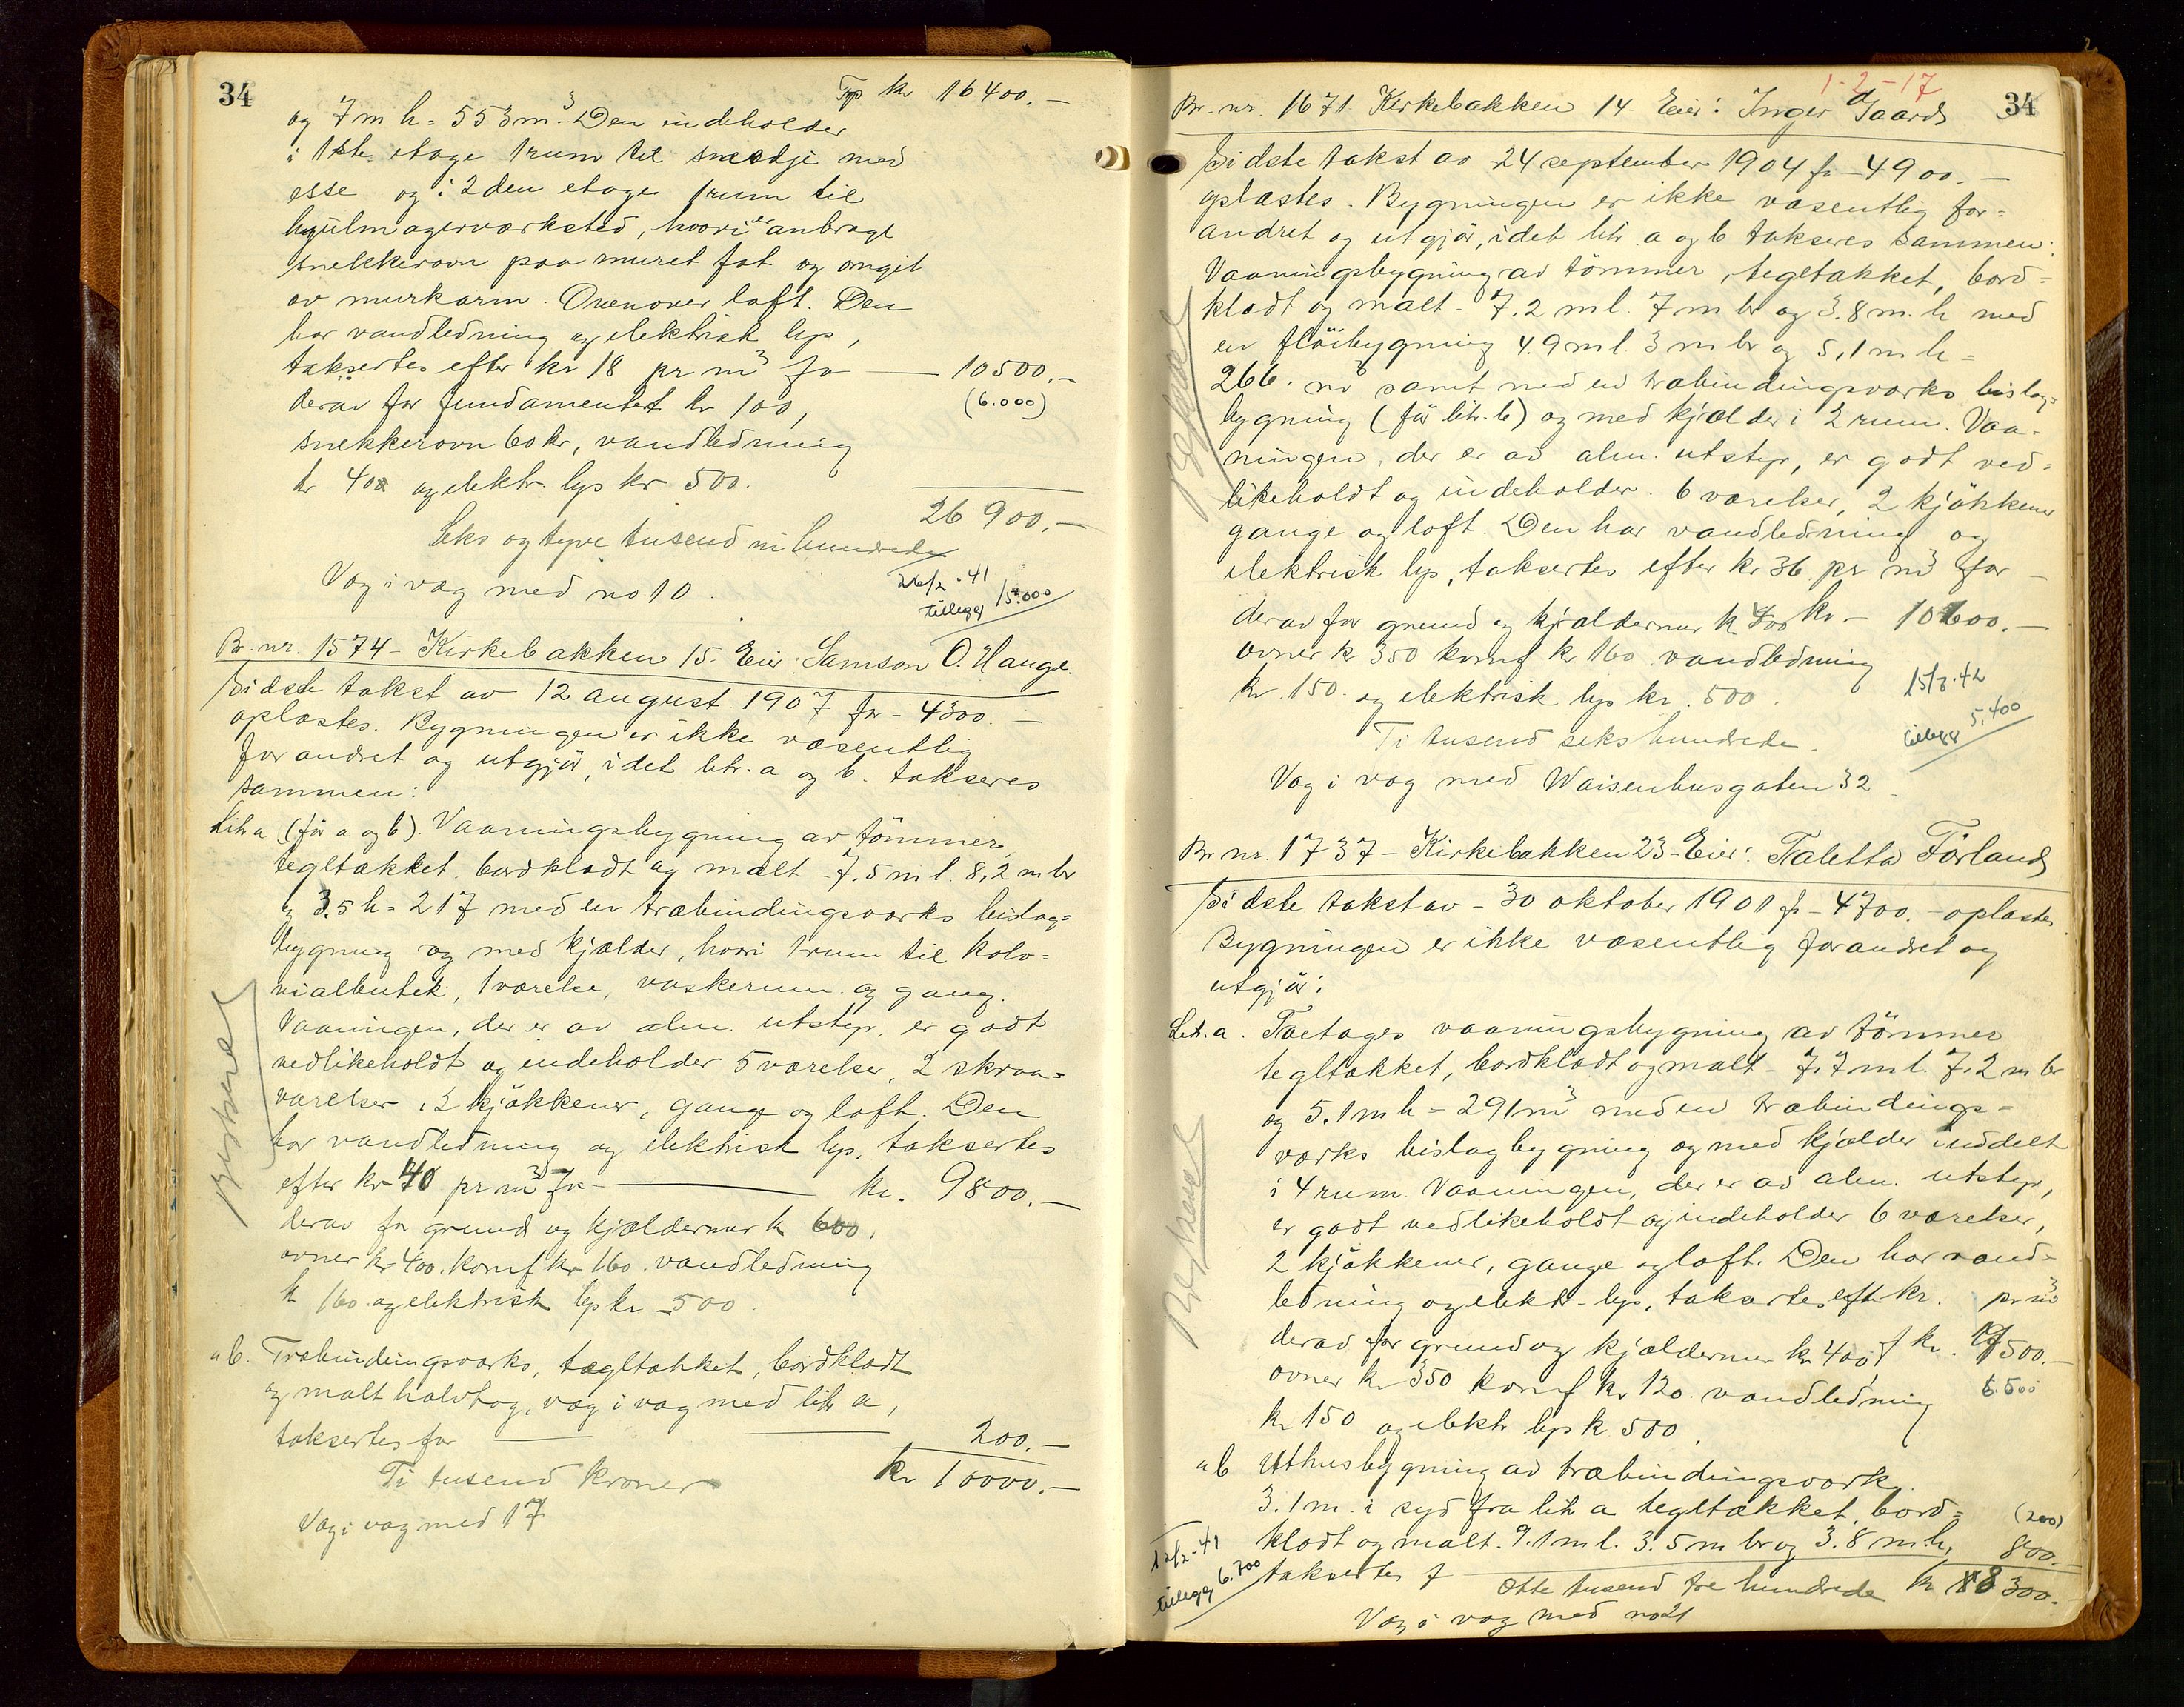 34
Tp kr 16400.-
og 7 m h = 553 m³. Den indeholder
i 1ste etage 1 rum til smedje med
esse og i 2den etage 1 rum til
hjulmagerværksted, hvori er anbragt
snekkerovn paa muret fot og omgit
av murkarm. Ovenover loft. Den
har vandledning og elektrisk lys,
taksertes efter kr 18 pr m³ for — 10500.-
derav for fundamentet kr 100, (6.000)
snekkerovn 60 kr, vandledning
kr 400 og elektr. lys kr 500.
26 900.-
Seks og tyve tusend ni hundrede
26/2-41
Væg i væg med no 10.
tillegg 15.000
Br. nr. 1574 - Kirkebakken 15. Eier: Samson O. Hauge.
Sidste takst av 12 august 1907 for - 4300.-
oplæstes. Bygningen er ikke væsentlig
forandret og utgjör, idet litr. a og b. takseres
sammen:
Litr a (för a og b). Vaaningsbygning av tömmer,
tegltækket, bordklædt og malt - 7.5 m l. 8,2 m br
og 3.5 h = 217 med en træbindingsværks bislag=
bygning og med kjælder, hvori 1 rum til kolo=
nialbutik, 1 værelse, vaskerum og gang.
Vaaningen, der er av alm. utstyr, er godt
vedlikeholdt og indeholder 5 værelser, 2 skraa=
værelser, 2 kjökkener, gange og loft. Den
har vandledning og elektrisk lys, taksertes
efter kr 40 pr m³ for — kr. 9800.-
derav for grund og kjældermur kr 600,
ovner kr 400. komf kr 160. vandledning
kr 160 og elektrisk lys kr 500.
" b. Træbindingsværks, tegltækket, bordklædt
og malt halvtag, væg i væg med litr a,
taksertes for — 200.-
Ti tusend kroner kr 10000.-
Væg i væg med 17
1-2-17
34
Br. nr. 1671 Kirkebakken 14. Eier: Inger Gaard
Sidste takst av 24 september 1904 fr - 4900.-
oplæstes. Bygningen er ikke væsentlig for=
andret og utgjör, idet litr. a og b takseres sammen:
Vaaningsbygning av tömmer, tegltækket, bord=
klædt og malt - 7.2 m l. 7 m br og 3.8 m. h med
en flöibygning 4.9 m l. 3 m br og 5,1 m h =
266. m³ samt med en træbindingsværks bislag=
bygning (för litr. b) og med kjælder i 2 rum. Vaa-
ningen, der er av alm. utstyr, er godt ved=
likeholdt og indeholder 6 værelser, 2 kjökkener
gange og loft. Den har vandledning og
elektrisk lys, taksertes efter kr 36 pr m³ for -
derav for grund og kjældermur kr 400 kr - 10600.-
ovner kr 350 komf kr 160 vandledning
kr. 150. og elektrisk lys kr. 500.
15/8.42
tillegg 5,400
Ti tusend seks hundrede.
Væg i væg med Waisenhusgaten 32
Br nr. 1737 - Kirkebakken 23 - Eier: Taletta Förland
Sidste takst av - 30 oktober 1901 fr - 4700. - oplæstes
Bygningen er ikke væsentlig forandret og
utgjör:
Litr. a. Toetages vaaningsbygning av tömmer
tegltækket, bordklædt og malt - 7.7 m l. 7.2 m br
og 5.1 m h = 291 m³ med en træbindings=
værks bislagbygning og med kjælder inddelt
i 4 rum. Vaaningen, der er av alm. utstyr,
er godt vedlikeholdt og indeholder 6 værelser,
2 kjökkener, gange og loft. Den har vand-
ledning og elektr. lys, taksertes efter kr. pr m³
derav for grund og kjældermur kr 400, f kr. 7500.-
ovner kr 350 komf kr 120. vandledning 6.500
kr 150 og elektr lys k 500.
" b Uthusbygning av træbindingsværk
3.1 m. i syd fra litr a tegltækket, bord= (200)
klædt og malt. 9.1 m l. 3.5 m br og 3.8 m. h, 800.-
12/2-41
tillegg 6.700
taksertes f
otte tusend tre hundrede kr 8300.-
Væg i væg med no 21